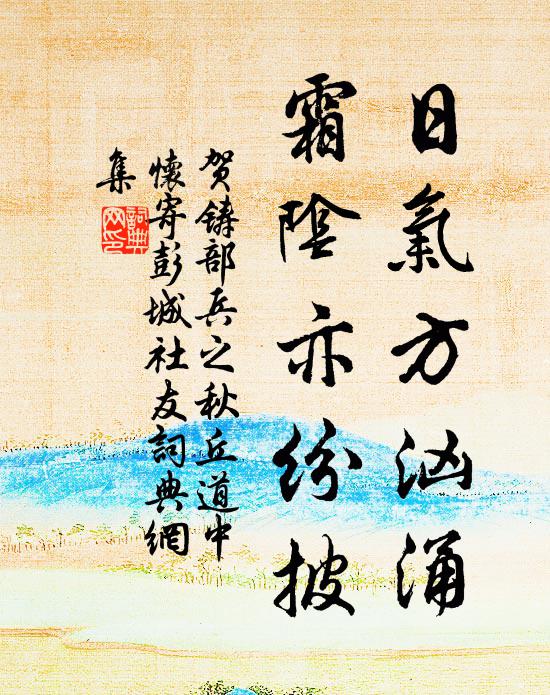 日氣方汹涌
霜陰亦紛披
賀鑄部兵之秋丘道中
懷寄彭城社友詞典網
集
詞典
网印